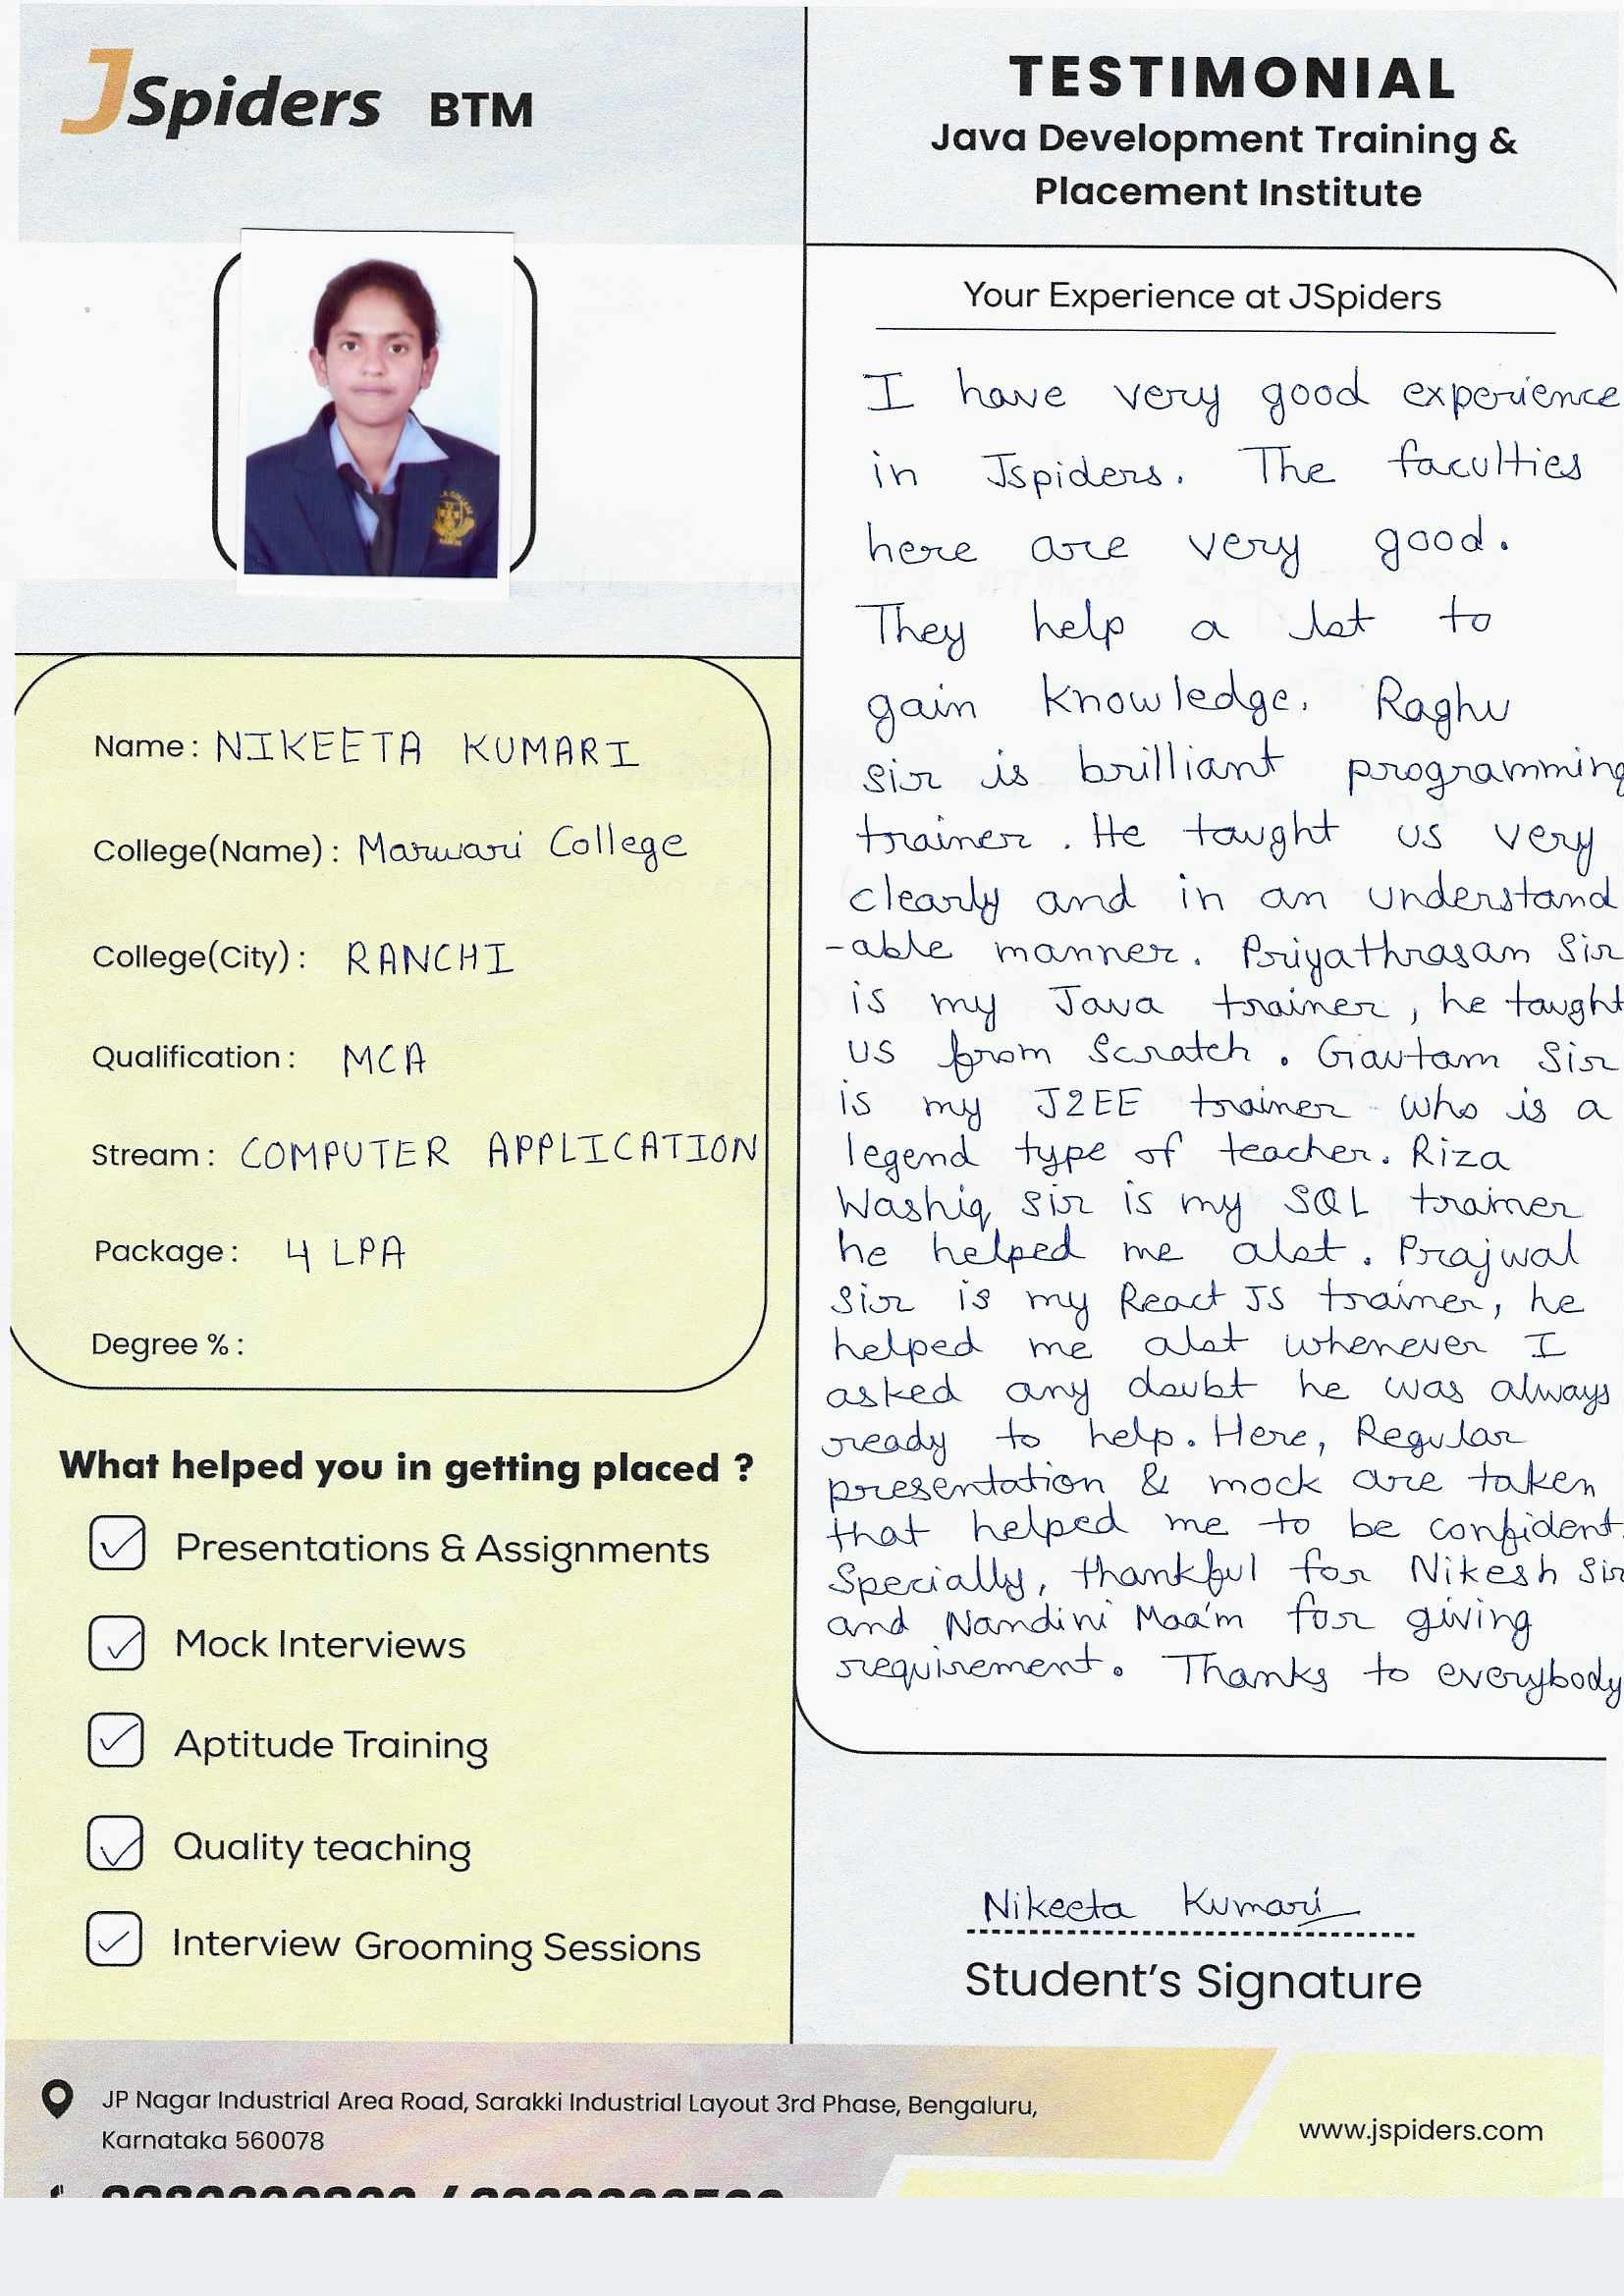 JSpiders BTM
TESTIMONIAL
Java Development Training &
Placement Institute
Name: NIKEETA KUMARI
College(Name): Marwari College
College(City): RANCHI
Qualification: MCA
Stream: COMPUTER APPLICATION
Package: 4 LPA
Degree %:
What helped you in getting placed ?
Presentations & Assignments
Mock Interviews
Aptitude Training
Quality teaching
Interview Grooming Sessions
Your Experience at JSpiders
I have very good experience
in Jspiders. The faculties
here are very good.
They help a lot to
gain knowledge. Raghu
sir is brilliant programming
trainer. He taught us very
clearly and in an understand
-able manner. Priyathrasan Sir
is my Java trainer, he taught
us from Scratch. Gautam Sir
is my J2EE trainer who is a
legend type of teacher. Riza
Washiq sir is my SQL trainer
he helped me alot. Prajwal
Sir is my React JS trainer, he
helped me alot whenever I
asked any doubt he was always
ready to help. Here, Regular
presentation & mock are taken
that helped me to be confident.
Specially, thankful for Nikesh Sir
and Nandini Maa'm for giving
requirement. Thanks to everybody
Nikeeta Kumari
Student's Signature
JP Nagar Industrial Area Road, Sarakki Industrial Layout 3rd Phase, Bengaluru,
Karnataka 560078
www.jspiders.com